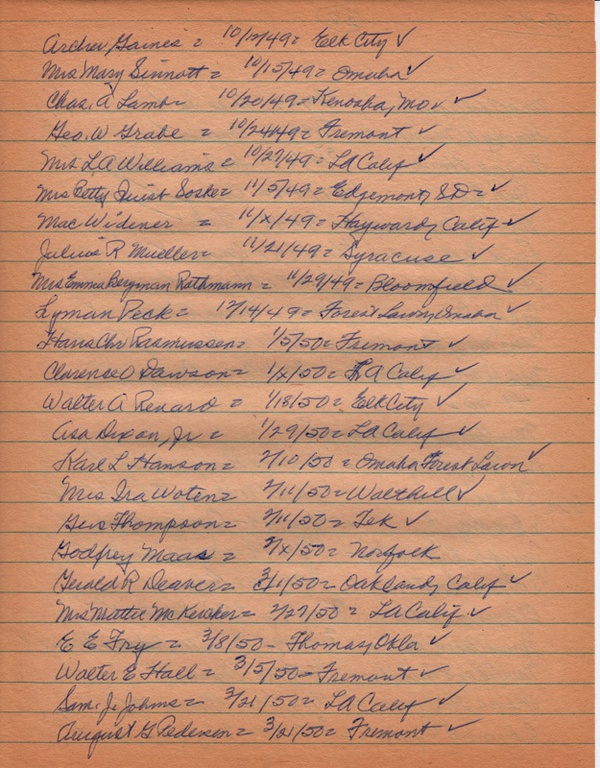 Archer Gaines = 10/12/49 = Elk City ✓
Mrs Mary Sinnott = 10/15/49 = Omaha ✓
Chas. A Lamb = 10/20/49 = Kenosha, Mo ✓ ✓
Geo. W Grabe = 10/24/49 = Fremont ✓
Mrs L A Williams = 10/27/49 = LA Calif ✓
Mrs Betty Quist Soske = 11/5/49 = Edgemont, SD = ✓
Mac Widener = 11/x/49 = Hayward, Calif ✓
Julius R Mueller = 11/21/49 = Syracuse ✓
Mrs Emma Bergman Rathmann = 11/29/49 = Bloomfield ✓
Lyman Peck = 12/14/49 = Forest Lawn, Omaha ✓
Hans Chr Rasmussen = 1/5/50 = Fremont ✓
Clarence O Dawson = 1/x/50 = LA Calif ✓
Walter A Renard = 1/18/50 = Elk City ✓
Asa Dixon, Jr = 1/29/50 = LA Calif ✓
Karl L Hanson = 2/10/50 = Omaha Forest Lawn ✓
Mrs Ira Woten = 2/11/50 = Walthill ✓
Geo Thompson = 2/11/50 = Tek ✓
Godfrey Maas = 2/x/50 = Norfolk
Gerald R Deaver = 3/1/50 = Oakland, Calif ✓
Mrs Mattie McKercher = 2/27/50 = LA Calif ✓
E E Fry = 3/8/50 - Thomas, Okla ✓
Walter E Hall = 3/5/50 = Fremont ✓
Sam. J. Johns = 3/21/50 = LA Calif ✓
August G Pedersen = 3/21/50 = Fremont ✓